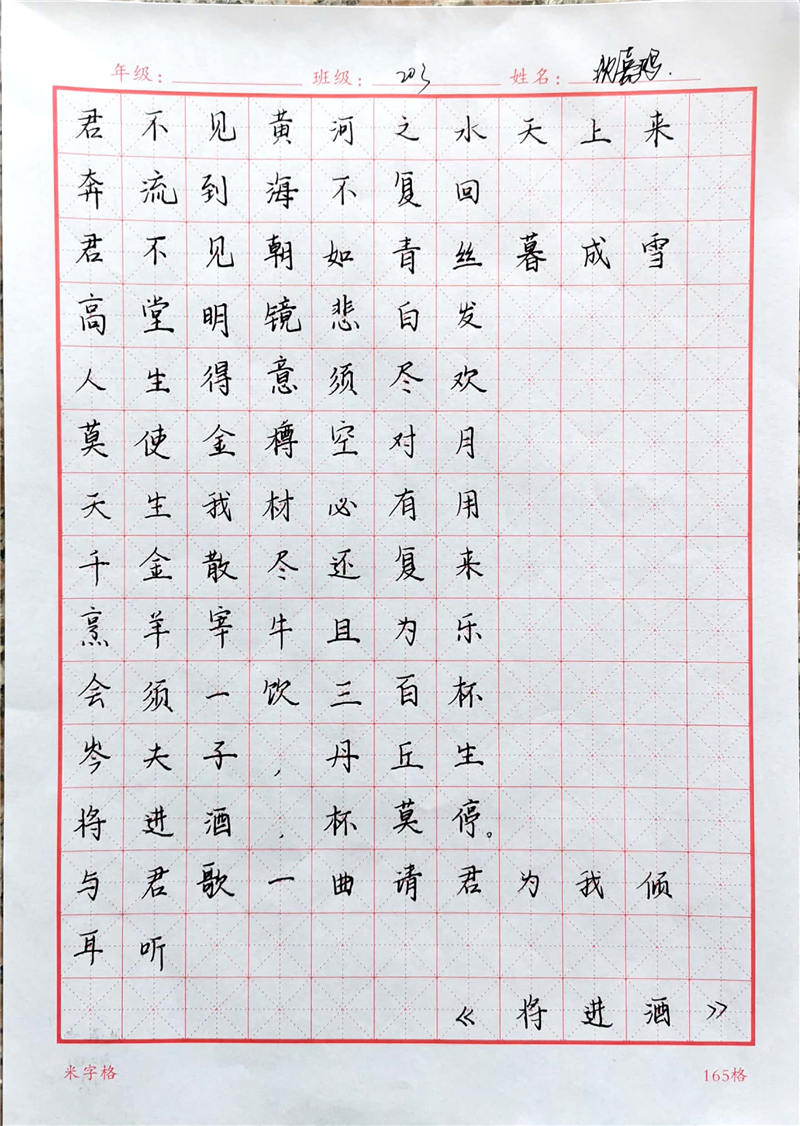 年级： 班级：203 姓名：
君不见黄河之水天上来
奔流到海不复回
君不见朝如青丝暮成雪
高堂明镜悲白发
人生得意须尽欢
莫使金樽空对月
天生我材必有用
千金散尽还复来
烹羊宰牛且为乐
会须一饮三百杯
岑夫子，丹丘生
将进酒，杯莫停。
与君歌一曲请君为我倾
耳听
《将进酒》
米字格 165格